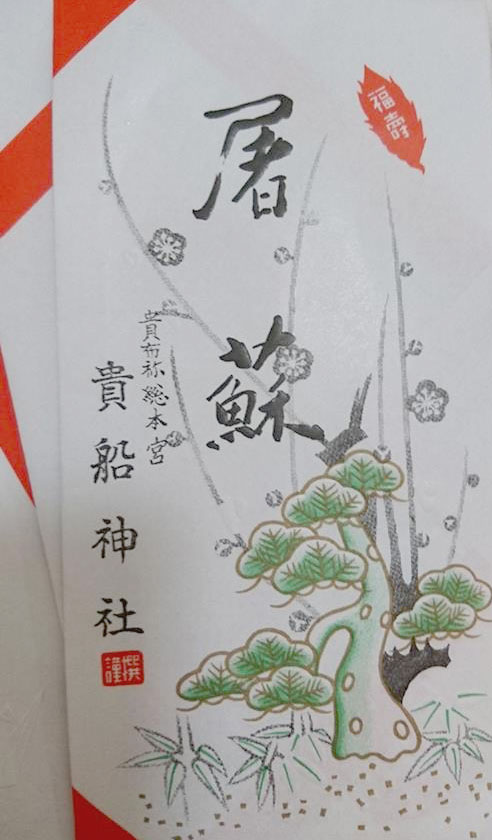 福壽
屠蘇
貴布祢総本宮
貴船神社
謹撰